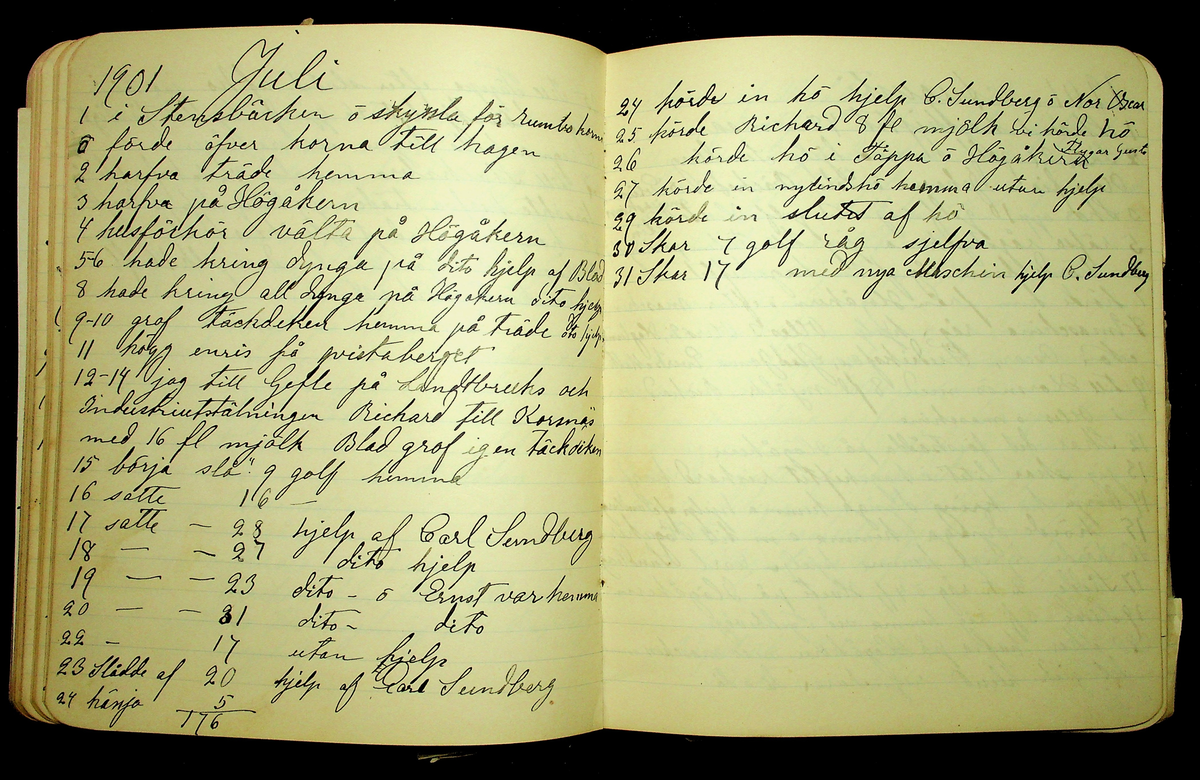 1901 Juli
1 i Stensbäcken ö skynla för rumbo
ö förde öfver korna till hagen
2 harfva träde hemma
3 harfva på Högåkern
4 välta på Högåkern
5-6 hade kring dynga på dito hjelp af Blad
8 hade kring all dynga på Högåkern dito hjelp
9-10 grof täckdiken hemma på träde dito hjelp
11 högg enris på qvistaberget
12-14 jag till Gefle på Landtbruks och
Industriutstälningen Richard till Korsnäs
med 16 fl mjölk Blad grof igen täckdiken
15 börja slå 9 golf hemma
16 satte 16 —
17 satte — 28 hjelp af Carl Sundberg
18 — — 27 dito hjelp
19 — — 23 dito – ö Ernst var hemma
20 — — 31 dito – dito
22 — 17 utan hjelp
23 Slädde af 20 hjelp af Carl Sundberg
24 hänjo 5
176
24 körde in hö hjelp C. Sundberg ö Nor Oscar
25 körde Richard 8 fl mjölk vi körde hö
26 körde hö i Täppa ö Högåkern
27 körde in nylindshö hemma utan hjelp
29 körde in slutet af hö
30 Skar 7 golf råg sjelfva
31 Skar 17 med nya Maschin hjelp C. Sundberg